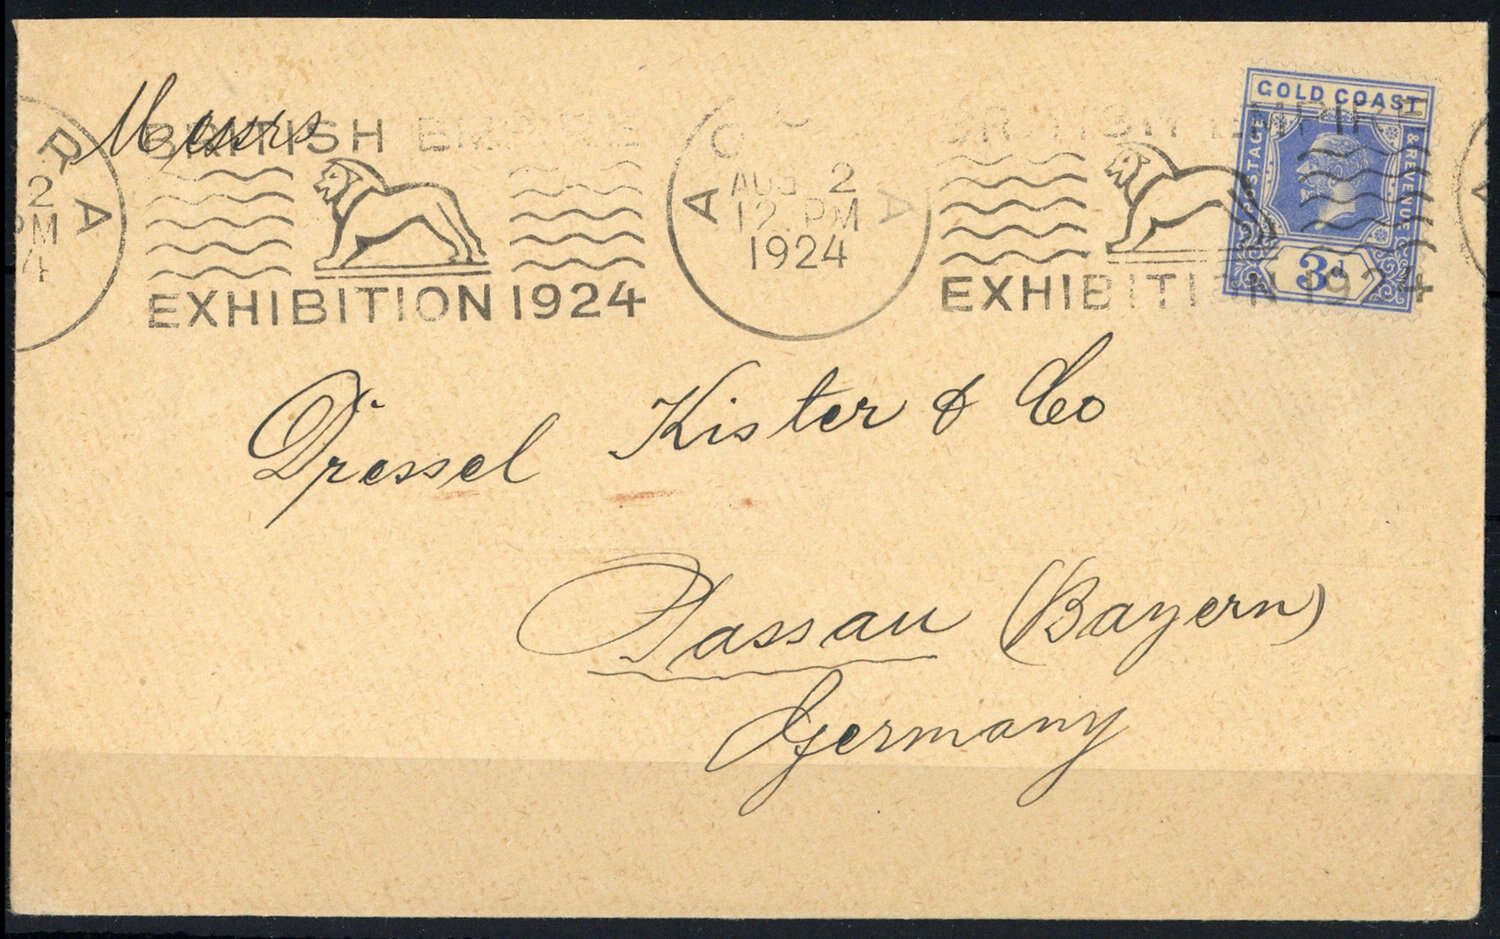 Messrs
R A
2
PM
4
BRITISH EMPIRE
EXHIBITION 1924
A C C A
AUG 2
12. PM
1924
BRITISH EMPIRE
EXHIBITION 1924
GOLD COAST
POSTAGE & REVENUE
3d
Dressel Kister & Co
Passau (Bayern)
Germany